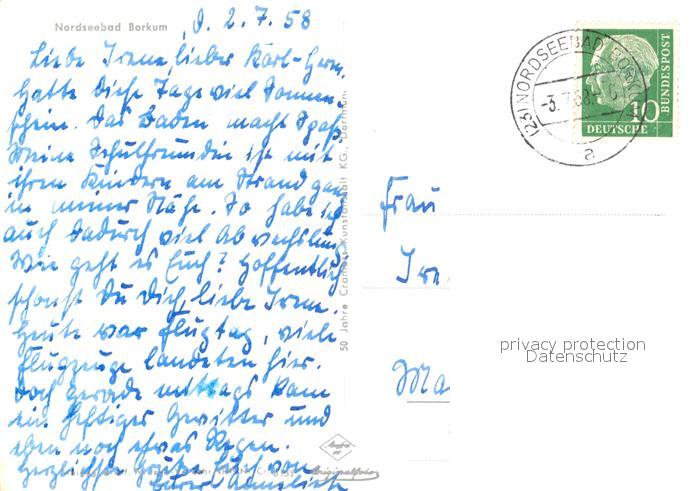 Nordseebad Borkum
d. 2. 7. 58
Liebe Irene, lieber Karl-Herm.
Hatte diese Tage viel Sonnen-
schein. Das Baden macht Spaß.
Meine Schulfreundin ist mit
ihren Kindern am Strand ganz
in meiner Nähe. So habe ich
auch dadurch viel Abwechslung.
Wie geht es Euch? Hoffentlich
schonst Du Dich, liebe Irene.
Heute war Flugtag, viele
Flugzeuge landeten hier.
Doch gerade mittags kam
ein heftiges Gewitter und
eben noch etwas Regen.
Herzliche Grüße Euch von
Eurer Anneliese
50 Jahre Cramers Kunstanstalt KG. Dortmund
Originalfoto
(23) NORDSEEBAD BORKUM
-3.7.58
a
10
DEUTSCHE
BUNDESPOST
Frau
Ire
Ma
privacy protection
Datenschutz